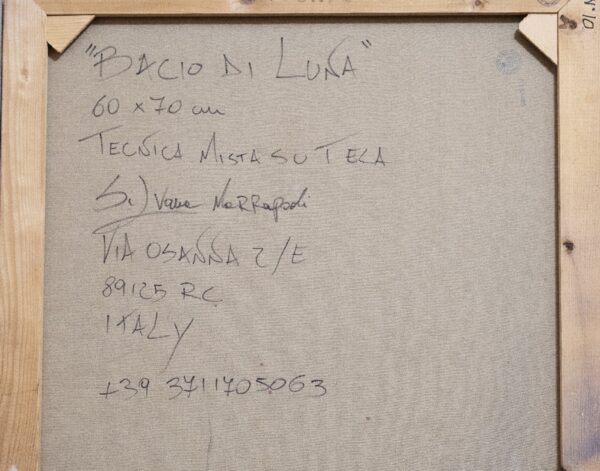 "BACIO DI LUNA"
60 x 70 cm
TECNICA MISTA SU TELA
Silvana Marrapodi
VIA OSANNA 2/E
89125 RC
ITALY
+39 3711705063